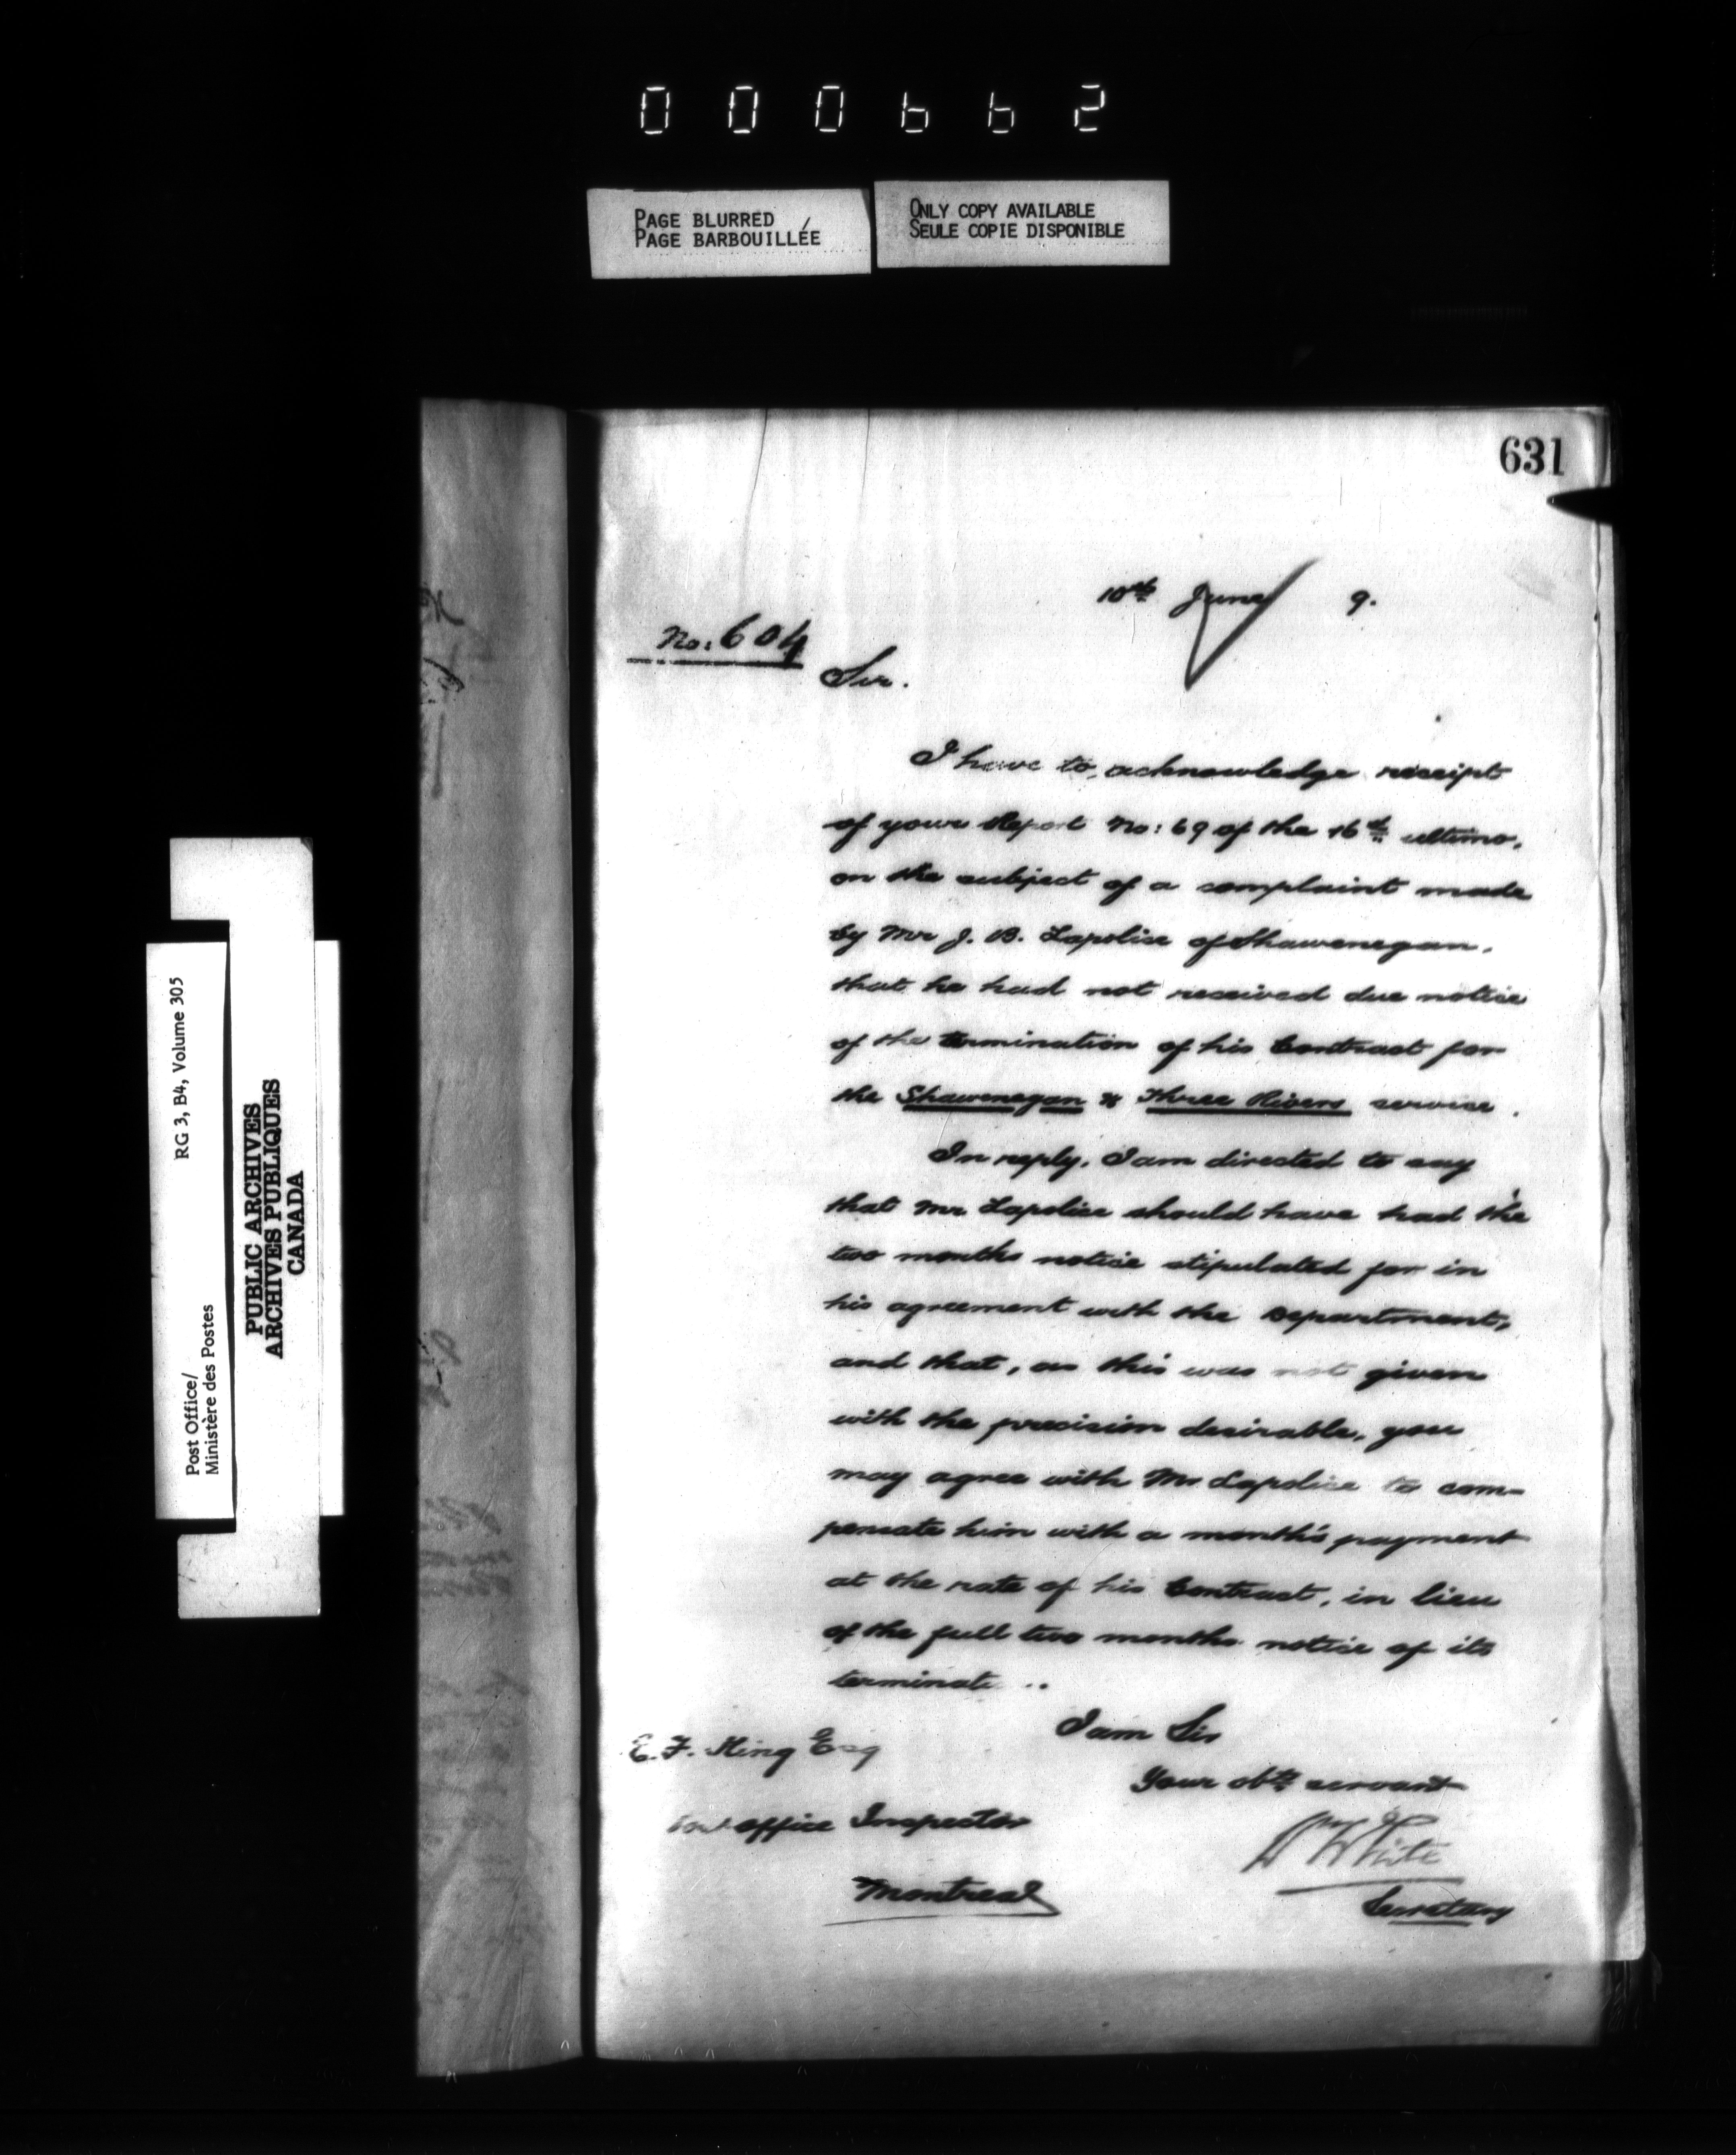 000662
PAGE BLURRED
PAGE BARBOUILLÉE
ONLY COPY AVAILABLE
SEULE COPIE DISPONIBLE
631
10th June 9.
No: 604
Sir.
I have to acknowledge receipt
of your Report No: 69 of the 16th ultimo,
on the subject of a complaint made
by Mr J. B. Lapolice of Shawenegan,
that he had not received due notice
of the termination of his Contract for
the Shawenegan & Three Rivers service.
In reply, I am directed to say
that Mr Lapolice should have had the
two months notice stipulated for in
his agreement with the Department,
and that, as this was not given
with the precision desirable, you
may agree with Mr Lapolice to com-
pensate him with a month's payment
at the rate of his Contract, in lieu
of the full two months notice of its
terminat
I am Sir
Your obt servant
Wm White
Secretary
E. F. King Esq
Post office Inspector
Montreal
RG 3, B4, Volume 305
Post Office/
Ministère des Postes
PUBLIC ARCHIVES
ARCHIVES PUBLIQUES
CANADA